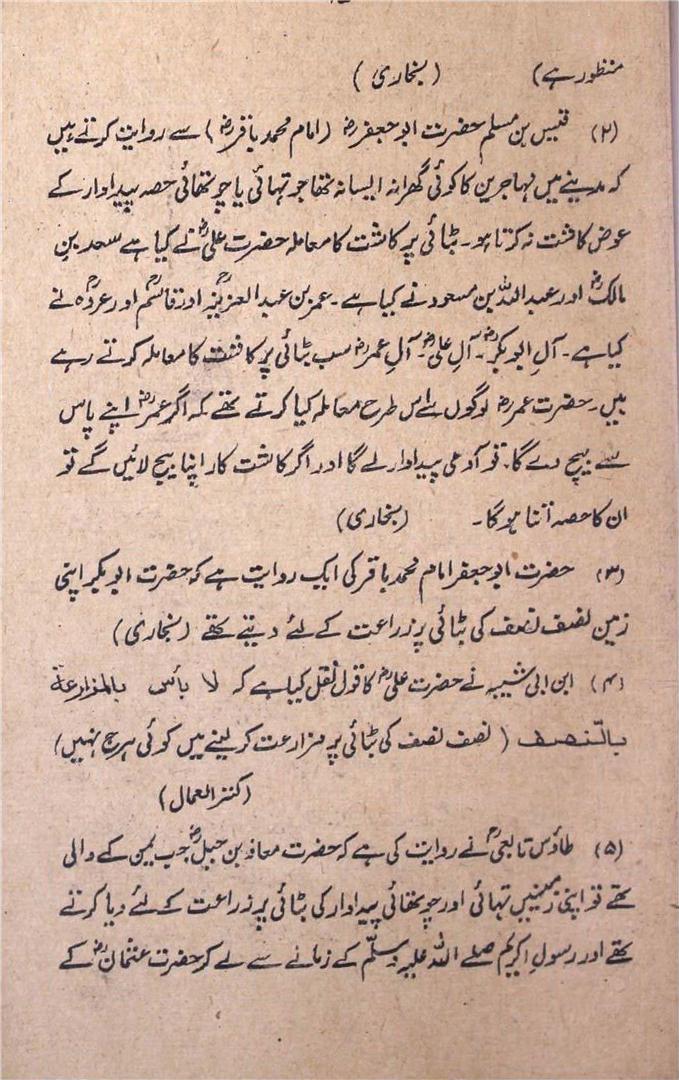 منظور ہے) (بخاری)
(۲) قیس بن مسلم حضرت ابو جعفرؓ (امام محمد باقرؓ) سے روایت کرتے ہیں
کہ مدینے میں مہاجرین کا کوئی گھرانہ ایسا نہ تھا جو تہائی یا چوتھائی حصہ پیداوار کے
عوض کاشت نہ کرتا ہو۔ بٹائی پر کاشت کا معاملہ حضرت علیؓ نے کیا ہے سعد بن
مالکؓ اور عبداللہ بن مسعود نے کیا ہے۔ عمر بن عبدالعزیزؒ اور قاسمؒ اور عروہؒ نے
کیا ہے۔ آلِ ابوبکرؓ۔ آلِ علیؓ۔ آلِ عمرؓ سب بٹائی پر کاشت کا معاملہ کرتے رہے
ہیں۔ حضرت عمرؓ لوگوں سے اس طرح معاملہ کیا کرتے تھے کہ اگر عمرؓ اپنے پاس
سے بیج دے گا۔ تو آدھی پیداوار لے گا اور اگر کاشت کار اپنا بیج لائیں گے تو
ان کا حصہ اتنا ہوگا۔ (بخاری)
(۳) حضرت ابو جعفر امام محمد باقر کی ایک روایت ہے کہ حضرت ابوبکر اپنی
زمین نصف نصف کی بٹائی پر زراعت کے لئے دیتے تھے (بخاری)
(۴) ابن ابی شیبہ نے حضرت علیؓ کا قول نقل کیا ہے کہ لا بأس بالمزارعة
بالنّصف (نصف نصف کی بٹائی پر مزارعت کر لینے میں کوئی ہرج نہیں)
(کنزالعمال)
(۵) طاؤس تابعیؒ نے روایت کی ہے کہ حضرت معاذ بن جبلؓ جب یمن کے والی
تھے تو اپنی زمینیں تہائی اور چوتھائی پیداوار کی بٹائی پر زراعت کے لئے دیا کرتے
تھے اور رسولِ اکرم صلے اللہ علیہ وسلّم کے زمانے سے لے کر حضرت عثمانؓ کے